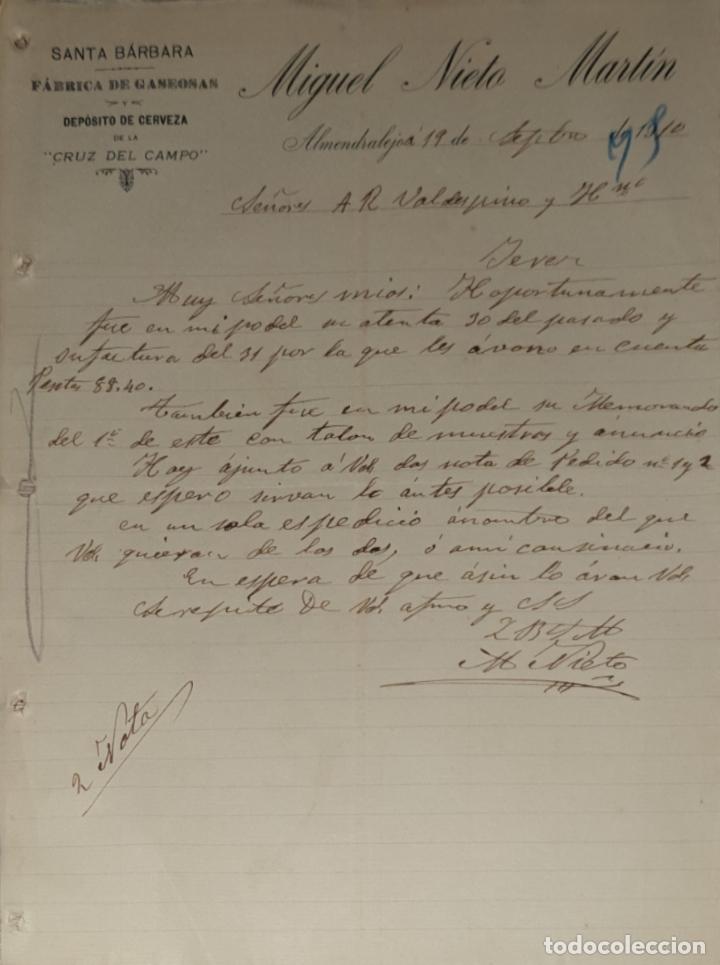 SANTA BÁRBARA
FÁBRICA DE GASEOSAS
Y
DEPÓSITO DE CERVEZA
DE LA
"CRUZ DEL CAMPO"
Miguel Nieto Martín
Almendralejo á 19 de Septbre de 1910
95
Señores A R Valdespino y Hno
Jerez
Muy Señores mios: oportunamente
fue en mi podel su atenta 30 del pasado y
su factura del 31 por la que les ávono en cuenta
Pesetas 88.40.
tambien fue en mi podel su Memorando
del 1º de este con talon de muestras y anuncio
Hoy ájunto á Vds dos nota de Pedido nº 1 y 2
que espero sirvan lo ántes posible.
en un sola espedició ánombre del que
Vds quieran de los dos, ó ami consinacio.
En espera de que ásin lo ávan Vds
Se repite de Vds afmo y SS
Q B S M
M Nieto
2 Nota
todocoleccion